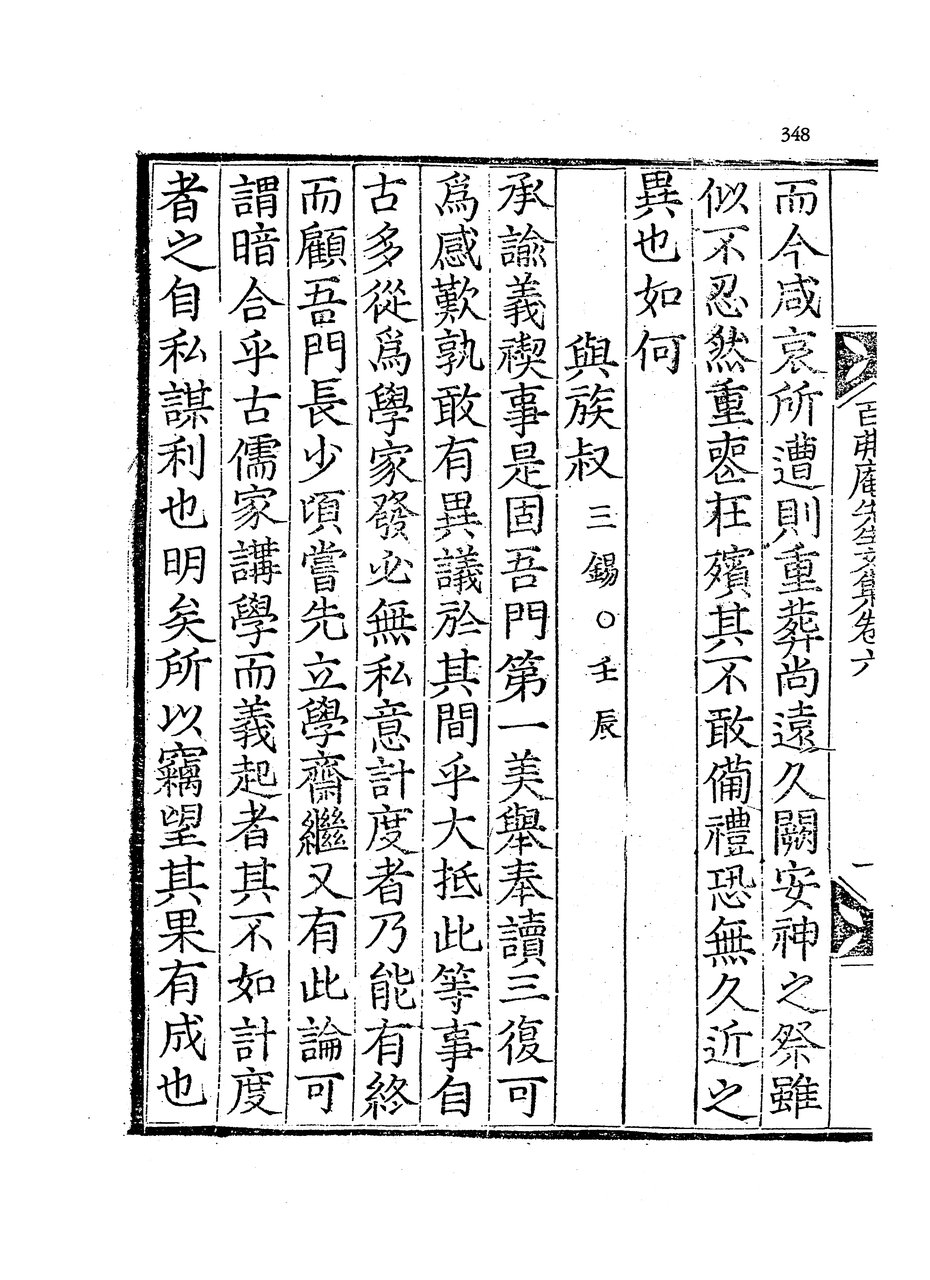 348
百弗庵先生文集卷六
一
而今咸哀所遭則重葬尚遠久闕安神之祭雖
似不忍然重喪在殯其不敢備禮恐無久近之
異也如何
與族叔三錫○壬辰
承諭義禊事是固吾門第一美擧奉讀三復可
爲感歎孰敢有異議於其間乎大抵此等事自
古多從爲學家發必無私意計度者乃能有終
而顧吾門長少頃嘗先立學齋繼又有此論可
謂暗合乎古儒家講學而義起者其不如計度
者之自私謀利也明矣所以竊望其果有成也